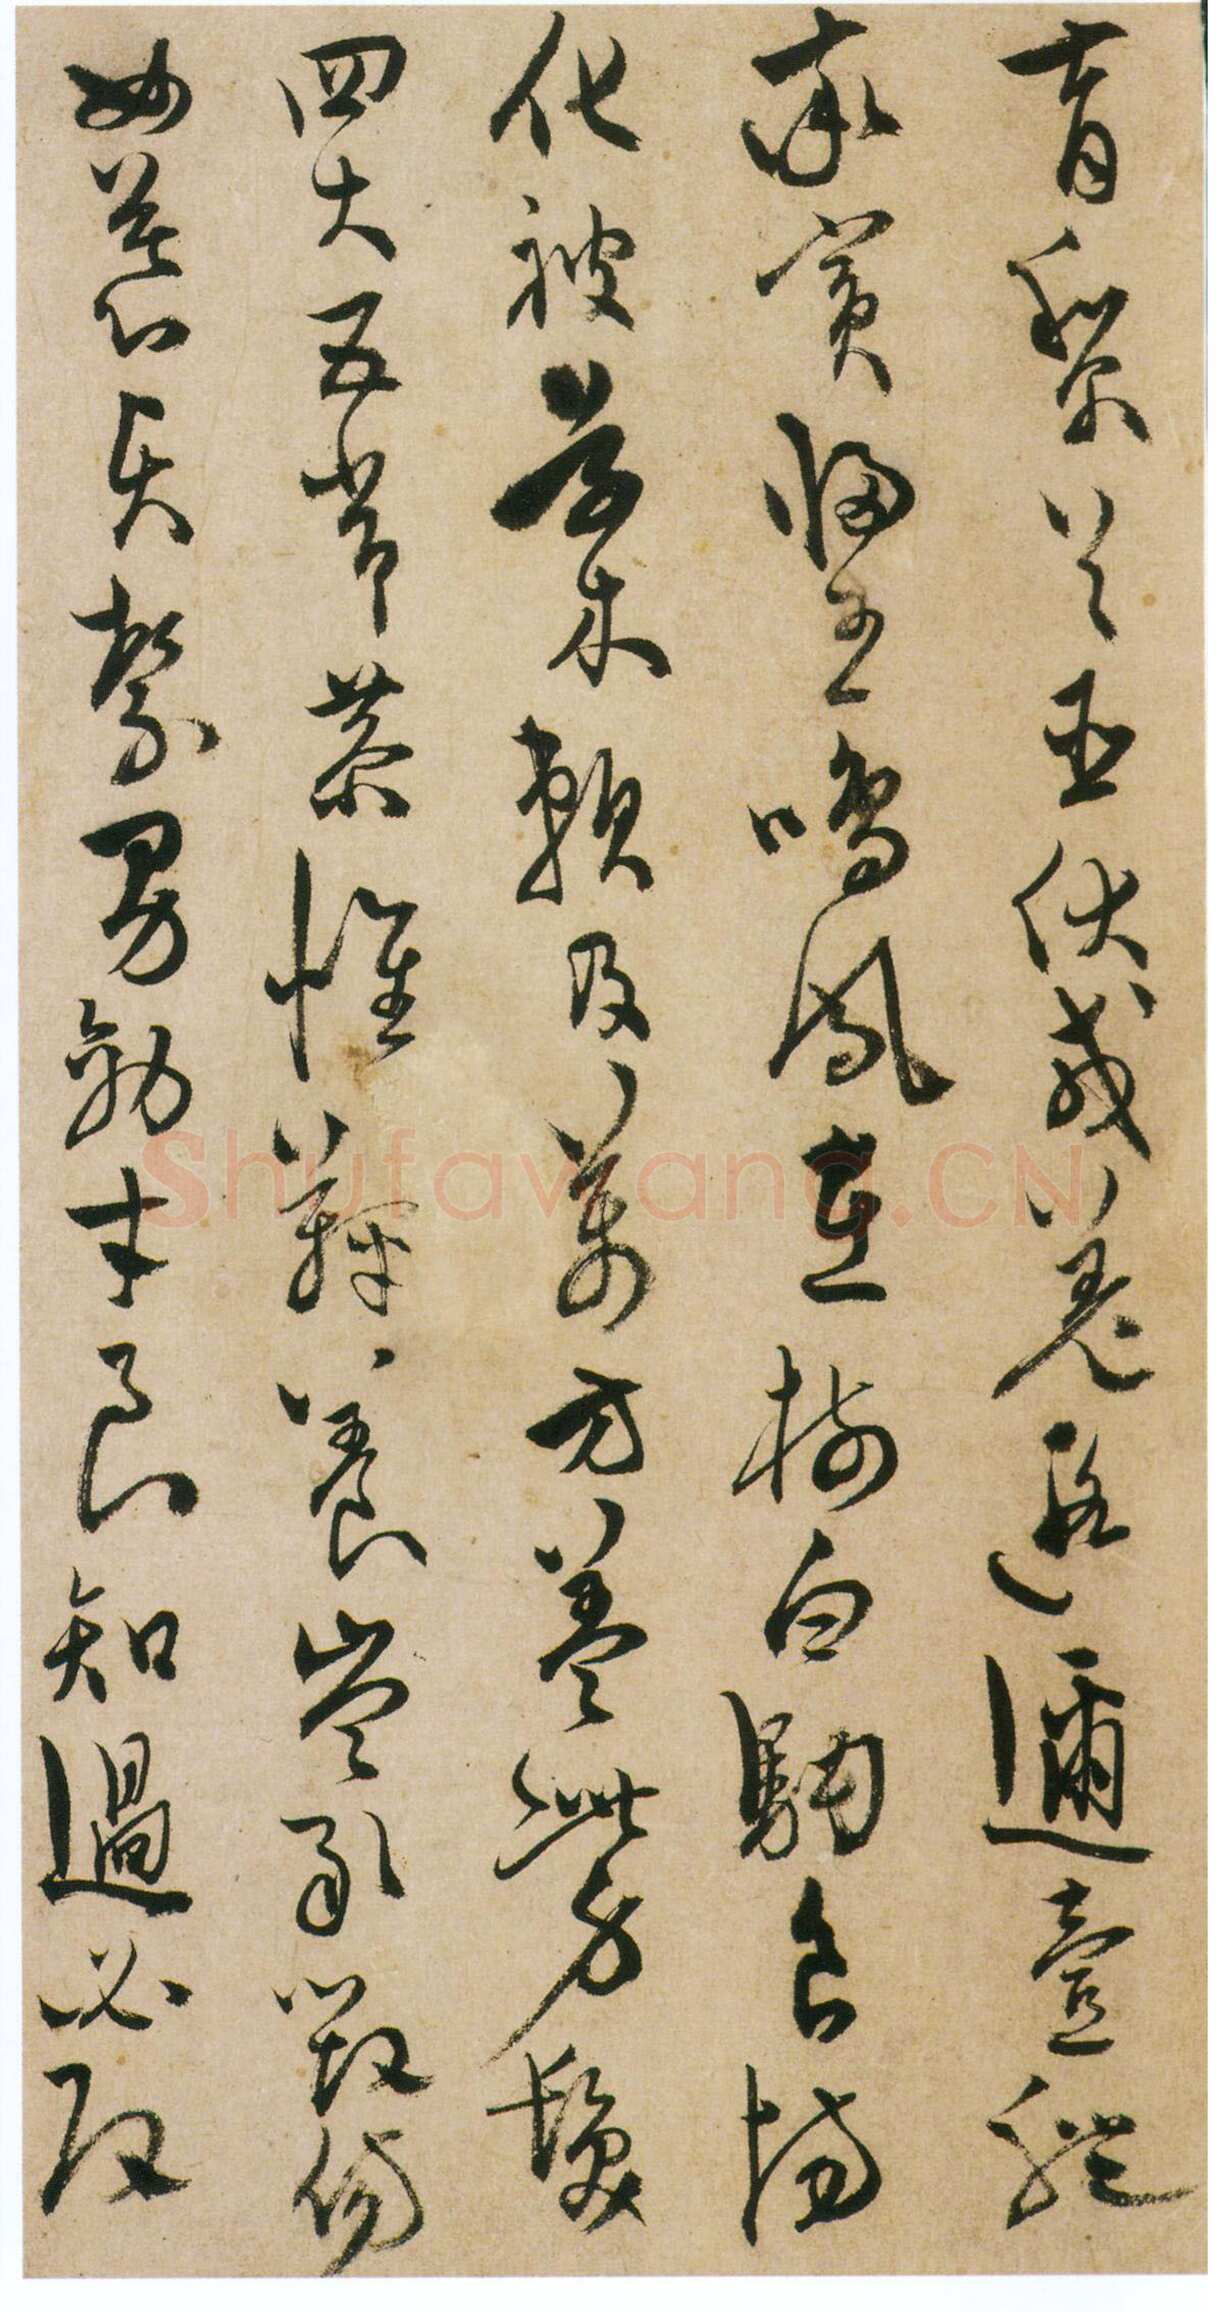 育黎首臣伏戎羌遐邇壹體
率賓歸王鳴鳳在樹白駒食場
化被草木賴及萬方蓋此身髮
四大五常恭惟鞠養豈敢毀傷
女慕貞絜男效才良知過必改
Shufawang.CN